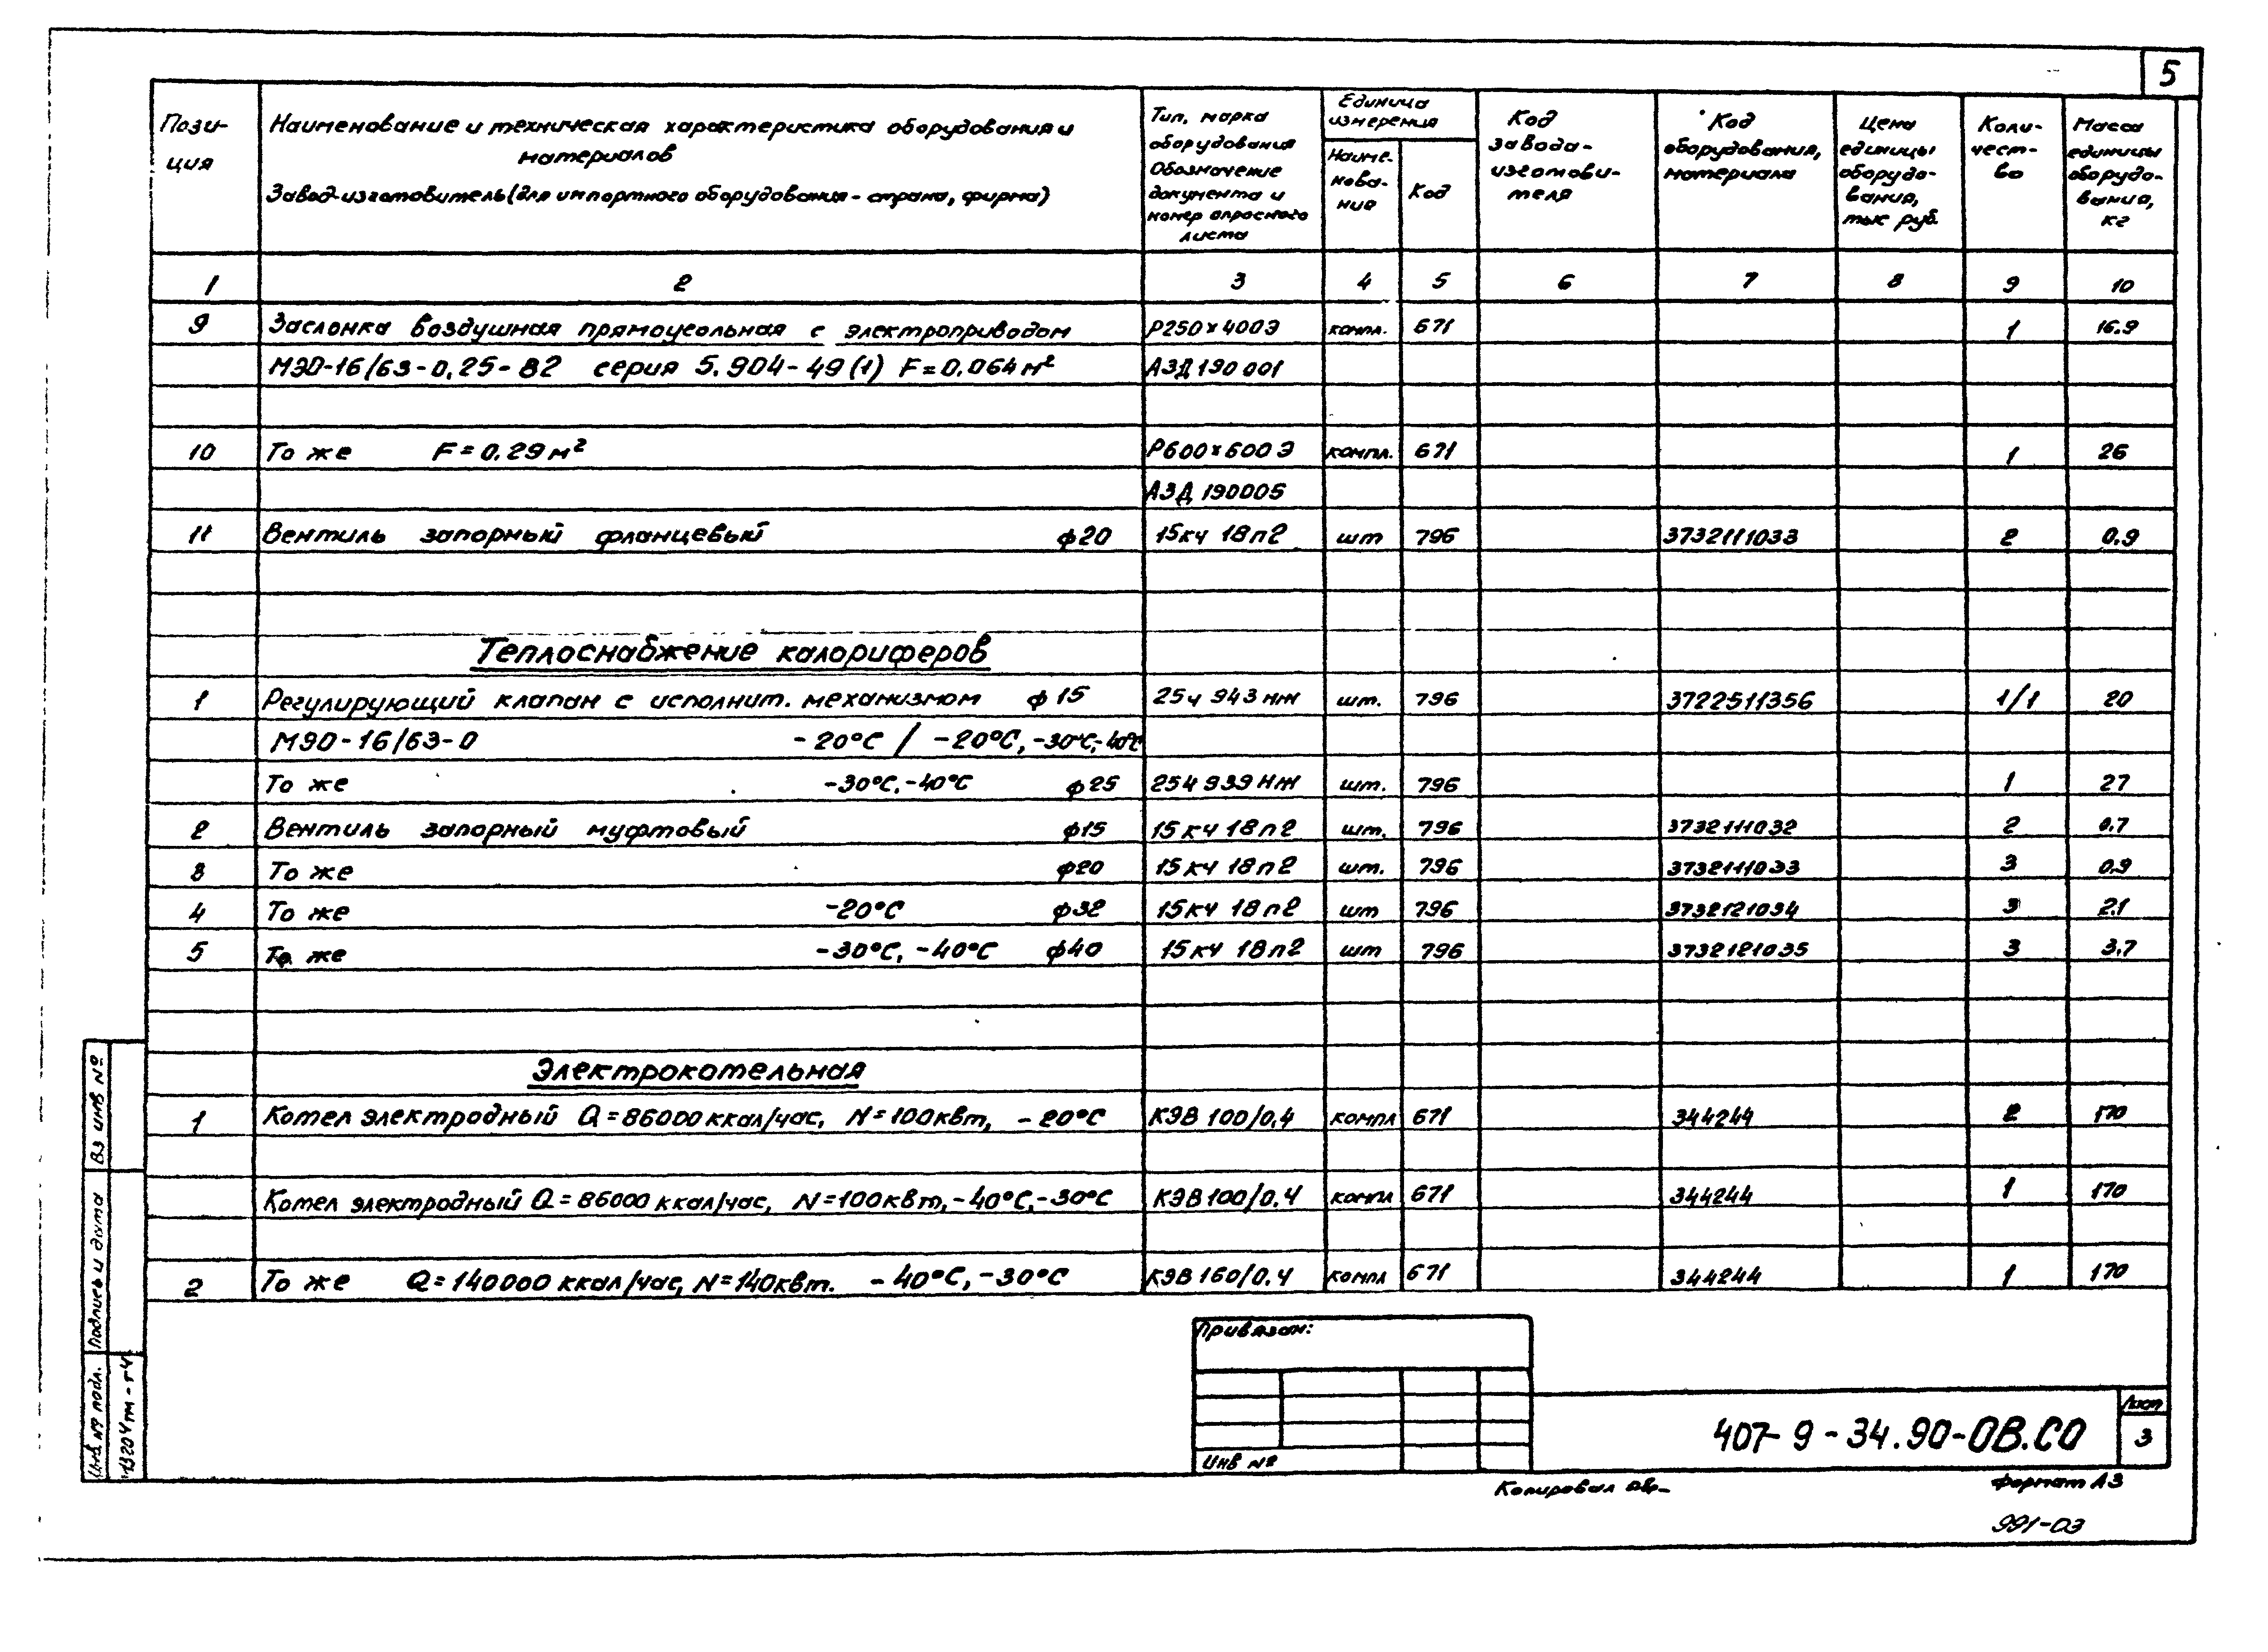 5
Позиция
Наименование и техническая характеристика оборудования и материалов
Завод-изготовитель (для импортного оборудования - страна, фирма)
Тип, марка оборудования Обозначение документа и номер опросного листа
Единица измерения
Наименование
Код
Код завода-изготовителя
Код оборудования, материала
Цена единицы оборудования, тыс руб.
Количество
Масса единицы оборудования, кг
1 2 3 4 5 6 7 8 9 10
9 Заслонка воздушная прямоугольная с электроприводом Р250х400Э компл. 671 1 16.9
МЭО-16/63-0,25-82 серия 5.904-49(1) F=0.064м² АЗД 190 001
10 То же F=0.29м² Р600х600Э компл. 671 1 26
АЗД 190005
11 Вентиль запорный фланцевый ф20 15кч 18п2 шт 796 3732111033 2 0.9
Теплоснабжение калориферов
1 Регулирующий клапан с исполнит. механизмом ф15 25ч 943 нж шт. 796 3722511356 1/1 20
МЭО-16/63-0 -20°С / -20°С, -30°С, -40°С
То же -30°С, -40°С ф25 25ч 939 нж шт. 796 1 27
2 Вентиль запорный муфтовый ф15 15кч 18п2 шт. 796 3732111032 2 0.7
3 То же ф20 15кч 18п2 шт. 796 3732111033 3 0.9
4 То же -20°С ф32 15кч 18п2 шт 796 3732121034 3 2.1
5 То же -30°С, -40°С ф40 15кч 18п2 шт 796 3732121035 3 3.7
Электрокотельная
1 Котел электродный Q=86000 ккал/час, N=100квт, -20°С КЭВ 100/0.4 компл 671 344244 2 170
Котел электродный Q=86000 ккал/час, N=100квт, -40°С, -30°С КЭВ 100/0.4 компл 671 344244 1 170
2 То же Q=140000 ккал/час, N=140квт. -40°С, -30°С КЭВ 160/0.4 компл 671 344244 1 170
Вз инв №
Подпись и дата
Инв № подл.
13204тм-т4
Привязан:
Инв №
407-9-34.90-ОВ.СО
Лист
3
Копировал
Формат А3
991-03